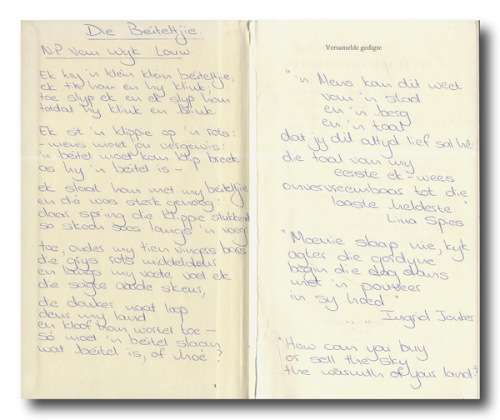 Die Beiteltjie
N.P Van Wyk Louw
Ek kry 'n klein klein beiteltjie,
ek tik hom en hy klink;
toe slyp ek en ek slyp hom
totdat hy klink en blink.
Ek sit 'n klippie op 'n rots:
- mens moet jou vergewis:
'n beitel moet kan klip breek
as hy 'n beitel is -
ek slaat hom met my beiteltjie
en dié was sterk genoeg:
daar spring die klippie stukkend
so skoon soos langs 'n voeg
toe, onder my tien vingers bars
die grys rots middeldeur
en langs my voete voel ek
die sagte aarde skeur,
die donker naat loop
deur my land
en kloof hom wortel toe -
só moet 'n beitel slaan
wat beitel is, of hoé?
Versamelde gedigte
"'n Mens kan dit weet
van 'n stad
en 'n berg
en 'n taal
dat jy dit altyd lief sal hê
die taal van my
eerste ek-wees
onvervreembaar tot die
laaste helderte"
Lina Spies
"Moenie slaap nie, kyk
agter die gordyne
begin die dag dans
met 'n pouveer
in sy hoed"
Ingrid Jonker
"How can you buy
or sell the sky
the warmth of your land?